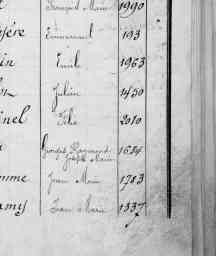 François Marie 1990
fére Emmanuel 193
in Emile 1963
Julien 1450
inel Félix 2010
Georges Raymond
Joseph Marie 1684
mme Jean Marie 1783
amy Jean Marie 1337